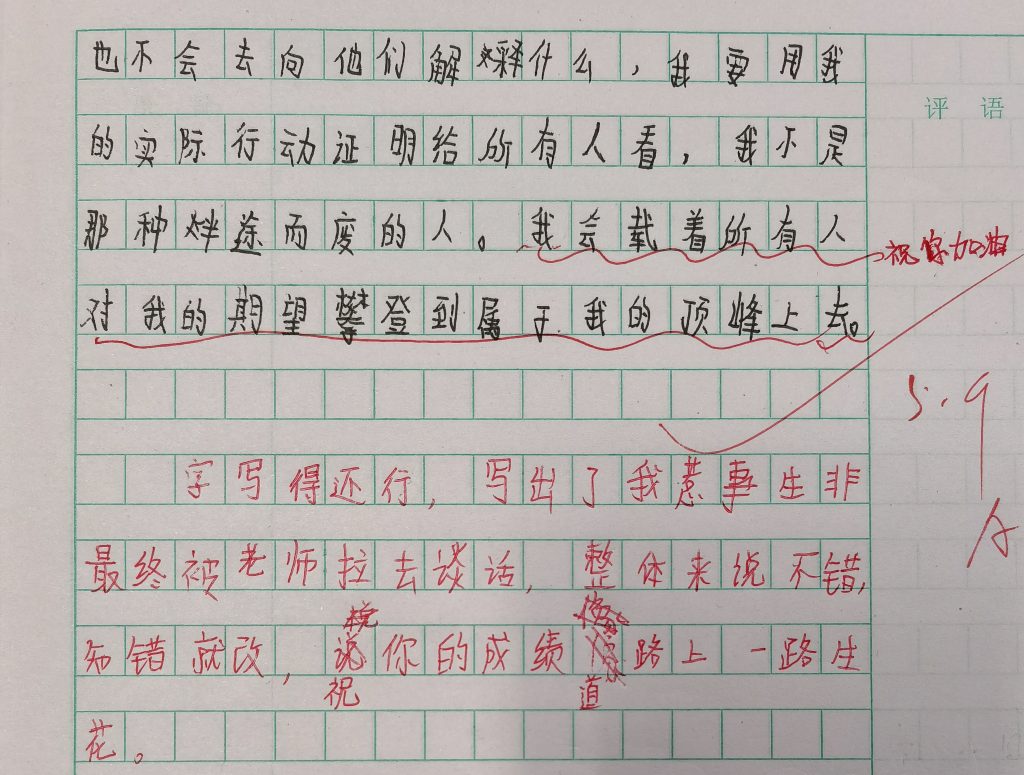 也不会去向他们解释什么，我要用我
评语
的实际行动证明给所有人看，我不是
那种半途而废的人。我会载着所有人
祝你加油
对我的期望攀登到属于我的顶峰上去。
5.9
字写得还行，写出了我惹事生非
最终被老师拉去谈话，整体来说不错，
知错就改，祝你的成绩道路上一路生
花。